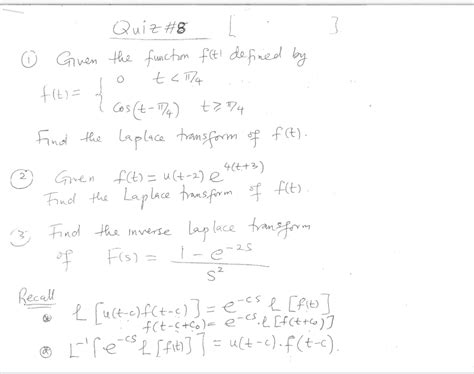 Quiz #8 [ ]
① Given the function f(t) defined by
f(t) = { 0 t < π/4
cos(t-π/4) t ≥ π/4
Find the Laplace transform of f(t).
② Given f(t) = u(t-2) e^{4(t+3)}
Find the Laplace transform of f(t).
③ Find the inverse Laplace transform
of F(s) = \frac{1 - e^{-2s}}{s^2}
Recall
⊛ L[u(t-c)f(t-c)] = e^{-cs} L[f(t)]
f(t-c+c₀) = e^{-cs}·L[f(t+c₀)]
⊛ L^{-1}[e^{-cs} L[f(t)]] = u(t-c)·f(t-c).